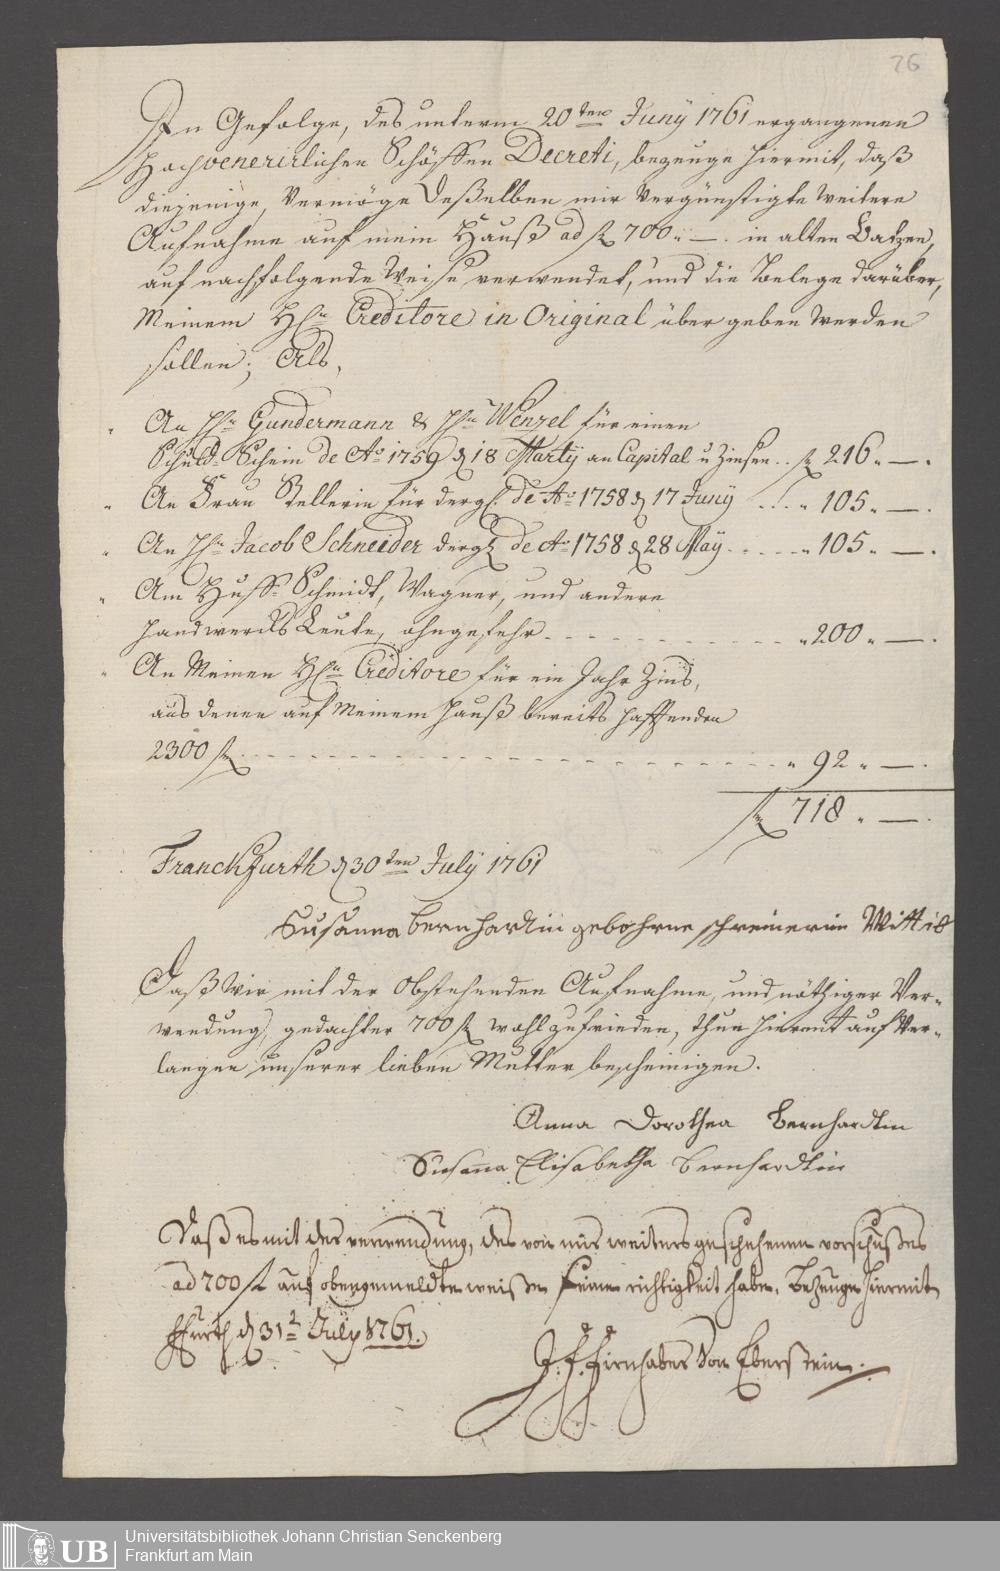 26
In Gefolge, des unterm 20ten Juny 1761 ergangenen
Hochvenerirlichen Schöffen Decreti, bezeuge hiermit, daß
diejenige, Vermöge Deßelben mir Vergünstigte weitere
Aufnahme auf mein Hauß ad f 700 „ —. in alten Batzen,
auf nachfolgende Weise verwendet, und die Belege darüber,
Meinem Hℏn Creditore in Original übergeben werden
sollen; Als,
„ An Hℏn Gundermann & Hℏn Wenzel für einen
Schuld-Schein de Ao 1759 d 18 Martÿ an Capital u Zinsen .. f 216 „ —.
„ An Frau Stellerin für dergl. de Ao 1758 d 17 Junÿ ... „ 105 „ —.
„ An Hℏn Jacob Schneider dergl de Ao 1758 d 28 Maÿ ..... „ 105 „ —.
„ Am Huff-Schmidt, Wagner, und andere
Handwercks Leute, ohngefehr - - - - - - - - „ 200 „ —.
„ An Meinen Hℏn Creditore für ein Jahr Zins,
aus denen auf Meinem Hauß bereits hafftenden
2300 f - - - - - - - - - - - - - - „ 92 „ —.
f 718 „ —.
Franckfurth d 30ten Julÿ 1761
Susanna bernhardtin gebohrne schreinerin Wittib
Daß Wir mit der Obstehenden Aufnahme, und nöthiger Ver-
wendung, gedachter 700 f wohl zufrieden, thun hiermit auf Ver-
langen unserer lieben Mutter bescheinigen.
Anna Dorothea Bernhardtin
Susanna Elisabetha Bernhardtin
Daß es mit der verwendung, des von mir weiters geschehenen vorschußes
ad 700 f auf obengemeldte weiße seine richtigkeit habe, bezeuge hiermit
ffurth d 31t Julÿ 1761.
J. f. Firnhaber Von Eberstein.
UB
Universitätsbibliothek Johann Christian Senckenberg
Frankfurt am Main